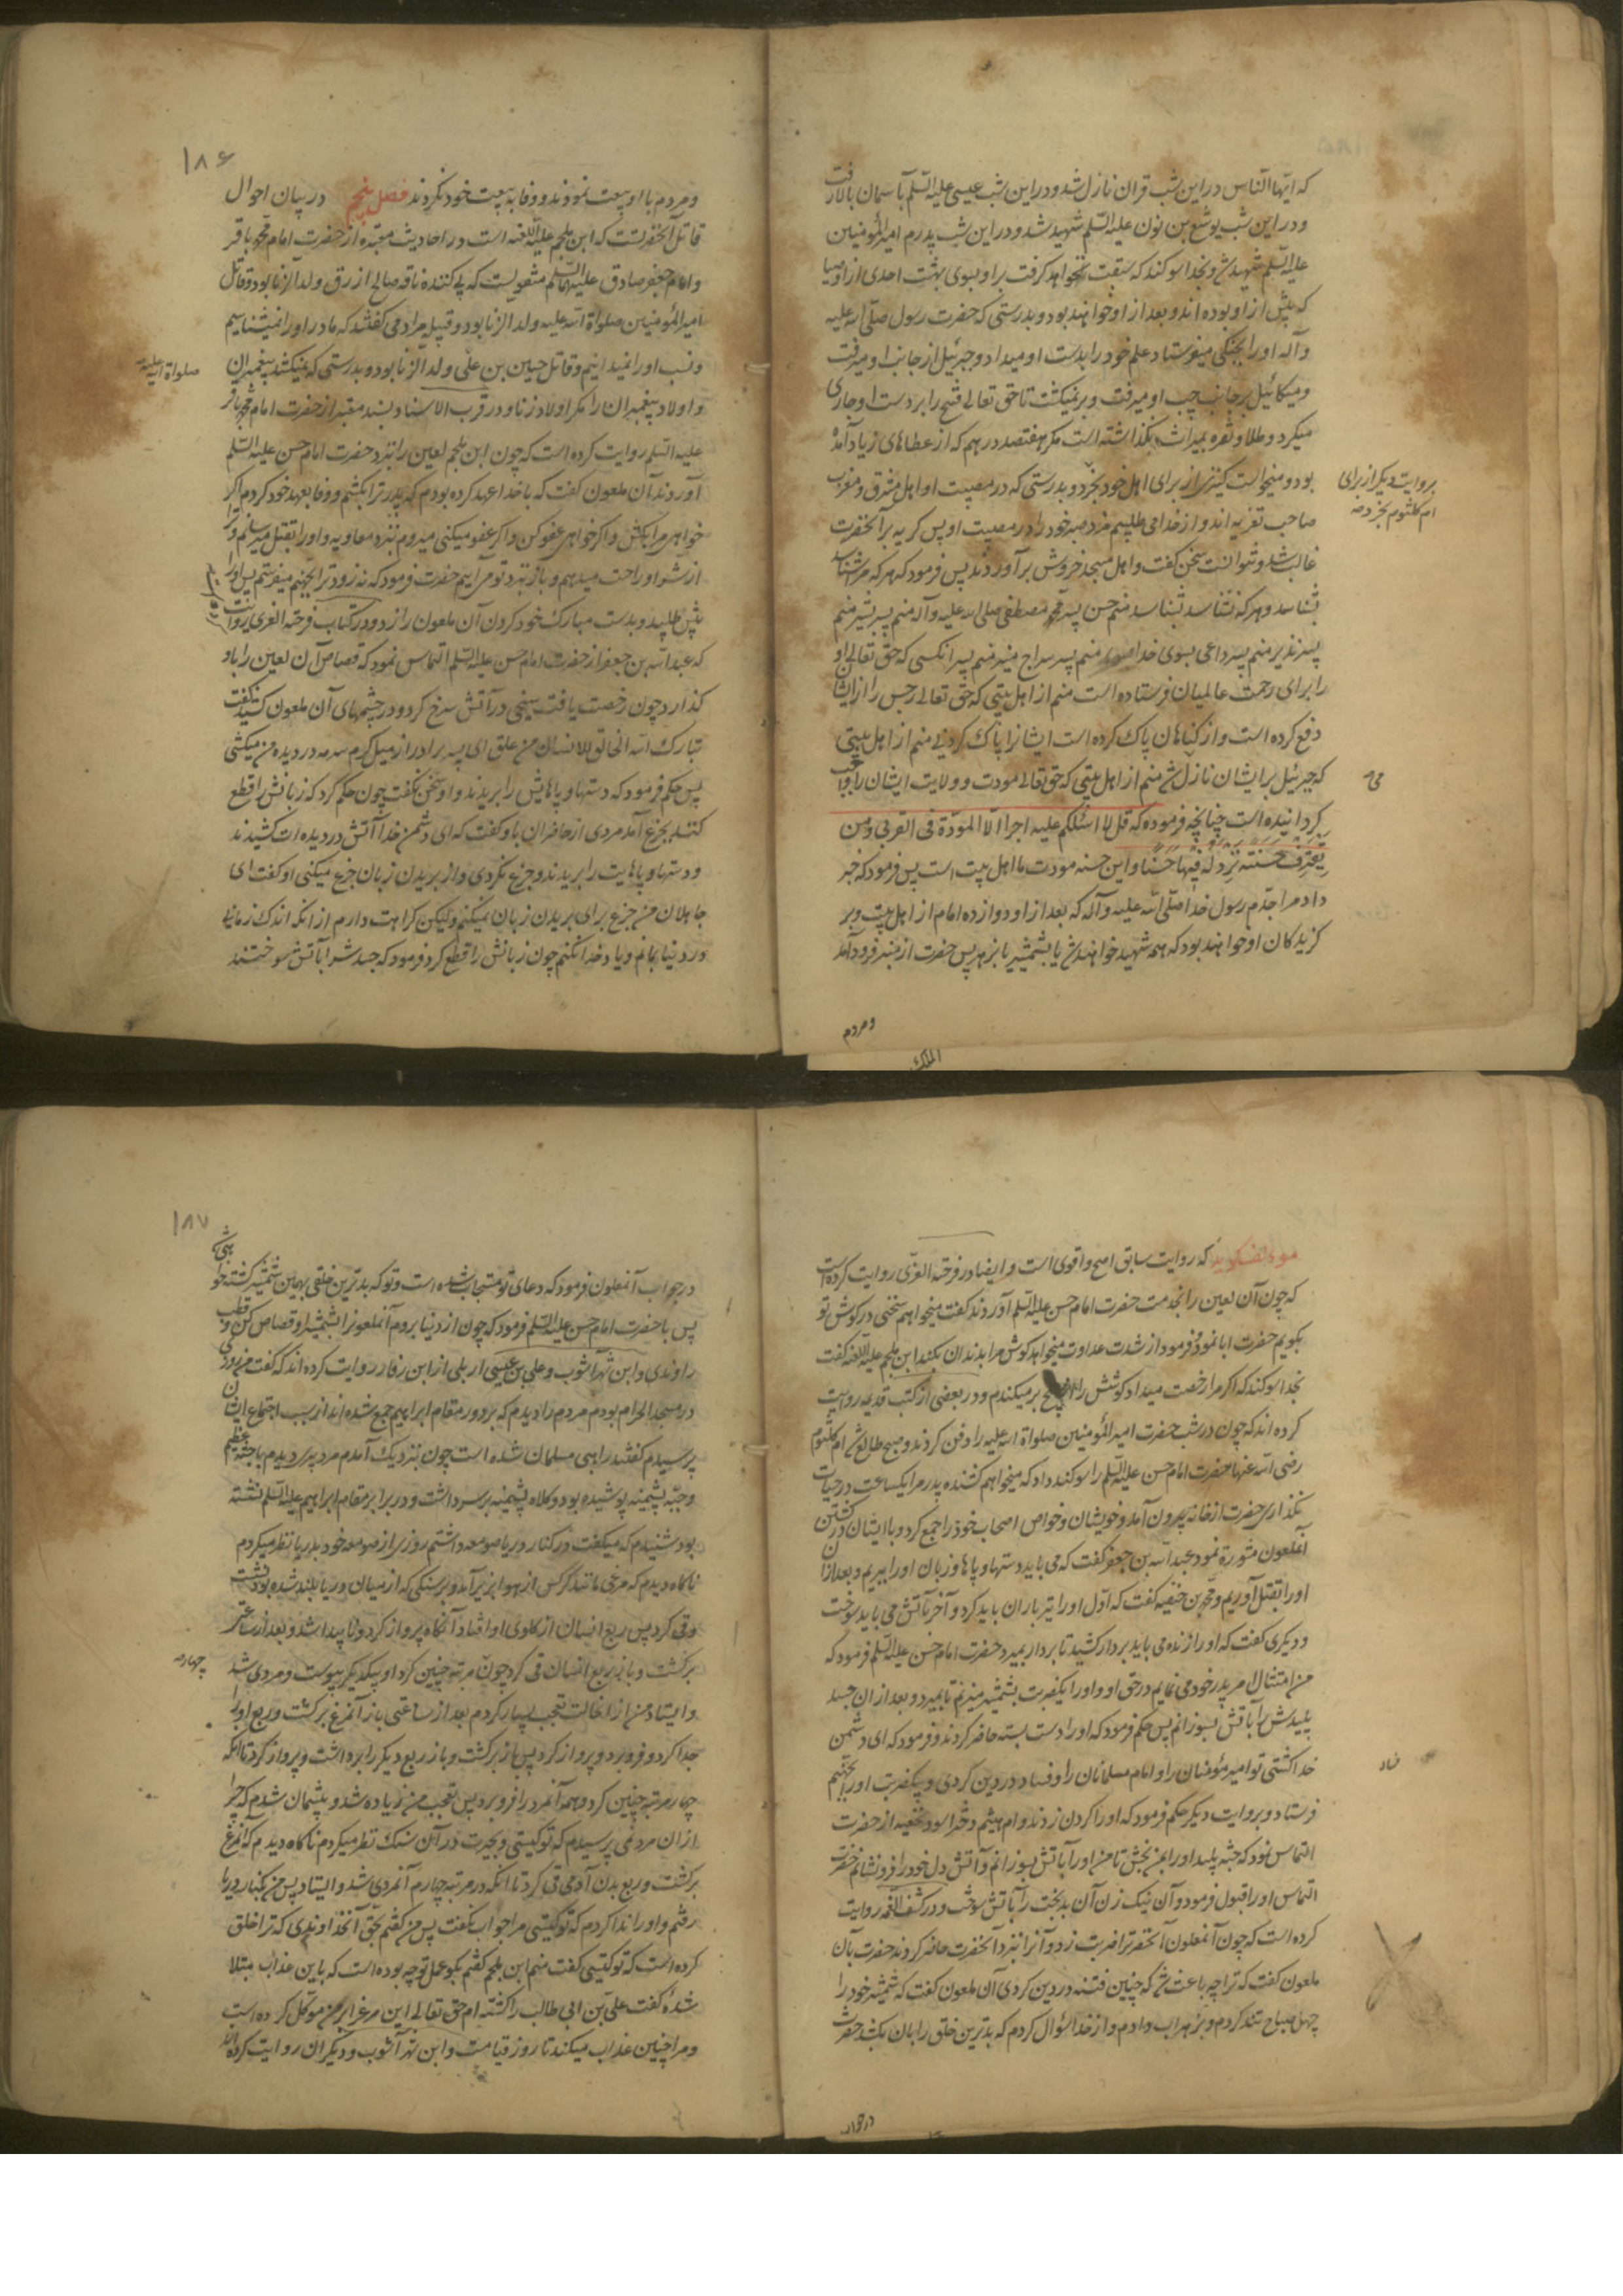 که ایها الناس در این شب قران نازل شد و در این شب عیسی علیه السلم بآسمان بالا رفت
و در این شب یوشع بن نون علیه السلم شهید شد و در این شب پدرم امیر المؤمنین
علیه السلم شهید شد و بخدا سوکند که سبقت نخواهد کرفت بر او بسوی بهشت احدی از اوصیا
که پیش از او بوده اند و بعد از او خواهند بود و بدرستی که حضرت رسول صلی الله علیه
و آله او را بجنکی میفرستاد علم خود را بدست او میداد و جبرئیل از جانب راست او میرفت
و میکائیل بر جانب چپ او میرفت و بر نمیکشت تا حق تعالی فتح را بر دست او جاری
میکرد و طلا و نقره بمیراث نکذاشته است مکر هفتصد درهم که از عطاهای او زیاد آمده
بود و میخواست کنیزی از برای اهل خود بخرد و بدرستی که در مصیبت او اهل مشرق و مغرب
بروایت دیکر از برای
ام کلثوم بخرد صح
صاحب تعزیه اند و از خدا می طلبیم مزد صبر خود را در مصیبت او پس کریه بر آنحضرت
غالب شد و نتوانست سخن کفت و اهل مسجد خروش برآوردند پس فرمود که هر که مرا شناسد
شناسد و هر که نشناسد بشناسد منم حسن پسر محمد مصطفی صلی الله علیه و آله منم پسر بشیر منم
پسر نذیر منم پسر داعی بسوی خدا منم پسر سراج منیر منم پسر انکسی که حق تعالی او
را برای رحمت عالمیان فرستاده است منم از اهل بیتی که حق تعالی رجس را از ایشان
دفع کرده است و از کناهان پاک کرده است ایشانرا پاک کردنی منم از اهل بیتی
که جبرئیل بر ایشان نازل شد منم از اهل بیتی که حق تعالی مودت و ولایت ایشان را واجب
کردانیده است چنانچه فرموده که قل لا اسئلکم علیه اجرا الا المودة فی القربی و من
یقترف حسنة نزد له فیها حسنا و این حسنه مودت ما اهل بیت است پس فرمود که خبر
داد مرا جدم رسول خدا صلی الله علیه و آله که بعد از او دوازده امام از اهل بیت و بر
کزیدکان او خواهند بود که همه شهید خواهند شد یا بشمشیر یا بزهر پس حضرت از منبر فرود آمد
و مردم
۱۸۶
و مردم با او بیعت نمودند و وفا به بیعت خود نکردند فصل پنجم در بیان احوال
قاتل آنحضرتست که ابن ملجم علیه اللعنه است در احادیث معتبره از حضرت امام محمد باقر
و امام جعفر صادق علیهما السلم منقولست که پی کننده ناقه صالح ازرق ولد الزنا بود و قاتل
امیر المؤمنین صلواة الله علیه ولد الزنا بود و قبیله مراد می کفتند که ما در او را نمیشناسیم
و نسب او را نمیدانیم و قاتل حسین بن علی ولد الزنا بود و بدرستی که نمیکشد پیغمبران
صلواة الله علیه
و اولاد پیغمبران را مکر اولاد زنا و در قرب الاسناد بسند معتبر از حضرت امام محمد باقر
علیه السلم روایت کرده است که چون ابن ملجم لعین را بنزد حضرت امام حسن علیه السلم
آوردند آن ملعون کفت که با خدا عهد کرده بودم که پدر ترا بکشم و وفا بعهد خود کردم اکر
خواهی مرا بکش و اکر خواهی عفو کن و اکر عفو میکنی میروم بنزد معاویه و او را بقتل میرسانم و ترا
از شر او راحت میدهم و باز بنزد تو می آیم حضرت فرمود که نه زود ترا بجهنم میفرستم پس او را
پیش طلبید و بدست مبارک خود کردن آن ملعون را زد و در کتاب فرحة الغری روایت
که عبدالله بن جعفر از حضرت امام حسن علیه السلم التماس نمود که قصاص آن لعین را باو
کذارد چون رخصت یافت میخی در آتش سرخ کرد و در چشمهای آن ملعون کشید کفت
تبارک الله الخالق للانسان من علق ای پسر برادر از میل کرم سرمه در دیده من میکشی
پس حکم فرمود که دستها و پاهایش را بریدند و او سخن نکفت چون حکم کرد که زبانش را قطع
کنند بجزع آمد مردی از حاضران باو کفت که ای دشمن خدا آتش در دیده ات کشیدند
و دستها و پاهایت را بریدند و جزع نکردی و از بریدن زبان جزع میکنی او کفت ای
جاهلان من جزع برای بریدن زبان نمیکنم ولیکن کراهت دارم از انکه اندک زمانی
در دنیا بمانم و یاد خدا نکنم چون زبانش را قطع کرد فرمود که جسدش را بآتش سوختند
مؤلف کوید که روایت سابق اصح و اقوی است و ایضا در فرحة الغری روایت کرده است
که چون آن لعین را بخدمت حضرت امام حسن علیه السلم آوردند کفت میخواهم سخنی در کوش تو
بکویم حضرت ابا نمود و فرمود از شدت عداوت میخواهد کوش مرا بدندان بکند ابن ملجم علیه اللعنه کفت
بخدا سوکند که اکر مرا رخصت میداد کوشش را از بیخ بر میکندم و در بعضی از کتب قدیمه روایت
کرده اند که چون در شب حضرت امیر المؤمنین صلواة الله علیه را دفن کردند و صبح طالع شد ام کلثوم
رضی الله عنها حضرت امام حسن علیه السلم را سوکند داد که میخواهم کشنده پدر مرا یکساعت در حیات
نکذاری حضرت از خانه بیرون آمد و خویشان و خواص اصحاب خود را جمع کرد و با ایشان در کشتن
آنملعون مشورة نمود عبدالله بن جعفر کفت که می باید دستها و پاها و زبان او را ببریم و بعد ازان
او را بقتل آوریم و محمد بن حنفیه کفت که اول او را تیر باران باید کرد و آخر بآتش می باید سوخت
و دیکری کفت که او را زنده می باید بردار کشید تا بر دار بمیرد حضرت امام حسن علیه السلم فرمود که
من امتثال امر پدر خود می نمایم در حق او و او را یکضربت بشمشیر میزنم تا بمیرد و بعد از ان جسد
پلیدش را بآتش بسوزانم پس حکم فرمود که او را دست بسته حاضر کردند و فرمود که ای دشمن
خدا کشتی تو امیر مؤمنان را و امام مسلمانان را و فساد در دین کردی و بیکضربت او را بجهنم
فساد
فرستاد و بروایت دیکر حکم فرمود که او را کردن زدند و ام هیثم دختر اسود نخعیه از حضرت
التماس نمود که جثه پلید او را بمن بخش تا من او را بآتش بسوزانم و آتش دل خود را فرونشانم حضرت
التماس او را قبول فرمود و آن نیک زن آن بدبخت را بآتش سوخت و در کشف الغمه روایت
کرده است که چون آنملعون آنحضرت را ضربت زد و آنرا بنزد آنحضرت حاضر کردند حضرت بآن
ملعون کفت که ترا چه باعث شد که چنین فتنه در دین کردی آن ملعون کفت که شمشیر خود را
چهل صباح تند کردم و بزهراب دادم و از خدا سؤال کردم که بدترین خلق را بان بکشد حضرت
در جواب
۱۸۷
در جواب آنملعون فرمود که دعای تو مستجاب شده است و تو که بدترین خلقی بهمین شمشیر کشته خواهی شد
پس با حضرت امام حسن علیه السلم فرمود که چون از دنیا بروم آنملعونرا بشمشیر او قصاص کن و قطب
راوندی و ابن شهر آشوب و علی بن عیسی اربلی از ابن رفا روایت کرده اند که کفت من روزی
در مسجد الحرام بودم مردم را دیدم که بر دور مقام ابراهیم جمع شده اند از سبب اجتماع ایشان
پرسیدم کفتند راهبی مسلمان شده است چون نزدیک آمدم مرد پیری دیدم با جثه عظیم
و جبه پشمینه پوشیده بود و کلاه پشمینه بر سر داشت و در برابر مقام ابراهیم علیه السلم نشسته
بود شنیدم که میکفت در کنار دریا صومعه داشتم روزی از صومعه خود بدریا نظر میکردم
ناکاه دیدم که مرغی مانند کرکس از هوا بزیر آمد و بر سنکی که از میان دریا بلند شده بود نشست
و قی کرد پس ربع انسان از کلوی او افتاد آنکاه پرواز کرد و ناپیدا شد و بعد از ساعتی
برکشت و باز ربع انسان قی کرد چون مرتبه چنین کرد او بیکدیکر پیوست و مردی شد
چهارم
و ایستاد من از انحالت تعجب بسیار کردم بعد از ساعتی باز آنمرغ برکشت و ربع او را
جدا کرد و فرو برد و پرواز کرد پس باز برکشت و باز ربع دیکر را برداشت و پرواز کرد تا انکه
چهار مرتبه چنین کرد و همه آنمرد را فرو برد پس تعجب من زیاده شد و پشیمان شدم که چرا
از ان مرد نمی پرسیدم که تو کیستی و بحیرت در آن سنک نظر میکردم ناکاه دیدم که آنمرغ
برکشت و ربع بدن آدمی قی کرد تا انکه در مرتبه چهارم آنمردی شد و ایستاد پس من بکنار دریا
رفتم و او را ندا کردم که تو کیستی مرا جواب نکفت پس من کفتم بحق آنخداوندی که ترا خلق
کرده است که تو کیستی کفت منم ابن ملجم کفتم بکو عمل تو چه بوده است که باین عذاب مبتلا
شدهٔ کفت علی بن ابی طالب را کشته ام حق تعالی این مرغ را بر من موکل کرده است
و مرا چنین عذاب میکند تا روز قیامت و ابن شهر آشوب و دیکران روایت کرده اند